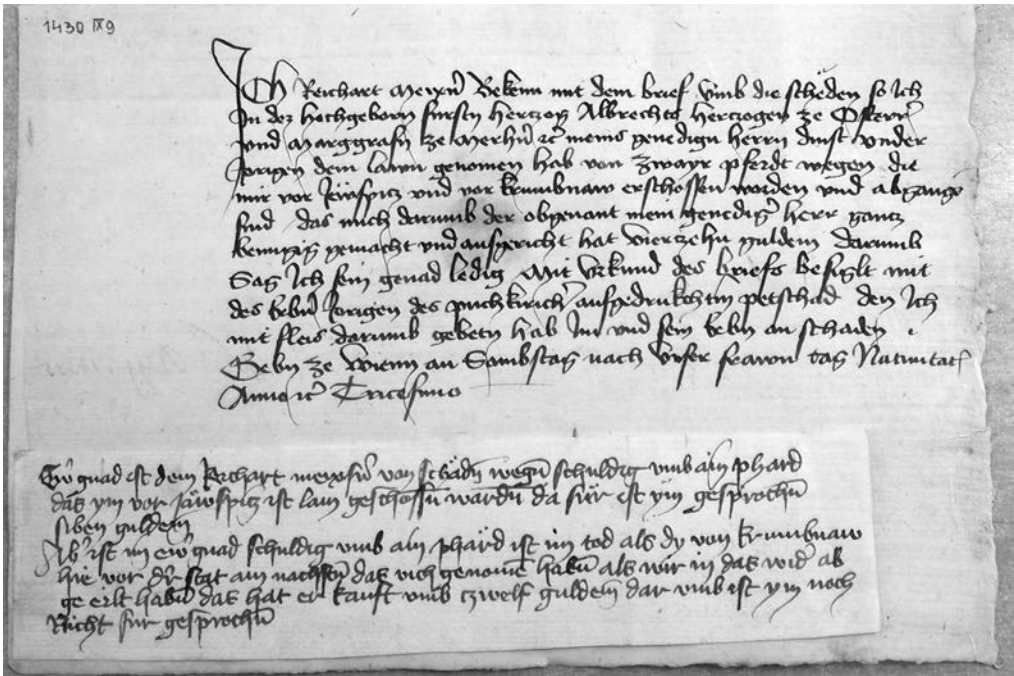 1430 IX 9
Ich Reichart Bekenn mit dem brief vmb die scheden so Ich
In dez hochgeborn fürstn herczog Albrechts herczogen ze Österr
vnd Marggrafn ze Merhrn etc meins genedign herrn dinst vnder
Jorigen dem lawn genomen hab von zwayr pferdt wegen die
mir vor Jewspicz vnd vor Krumbnaw erschossen worden vnd abgangen
sind das mich darumb der obgenant mein genedigr herr gancz
benugig gemacht vnd ausgericht hat Vierzehn guldein darumb
Sag Ich sein genad ledig Mit Vrkund des briefs besiglt mit
des Erbrn Jorigen des puchkircher aufgedrukchtm petschad den Ich
mit fleis darumb gebetn hab Im vnd sein Erbn an schaden
Gebn ze Wienn an Sambstag nach Vnser frawn tag Natiuitatis
Anno etc Tricesimo
Ewr gnad ist dem Reichart von schadn wegn schuldig vmb ain phard
das ym vor Jawspicz ist lam geschossn wardn da für ist ym gesprochn
siben guldein
Abr ist im ewr gnad schuldig vmb ain phard ist im tod als dy von Krumbnaw
hie vor der stat am nachstn das vich genome habn als wir in das widr ab
ge eilt habn das hat er kauft vmb czwelf guldein dar vmb ist ym noch
Nicht für gesprochn